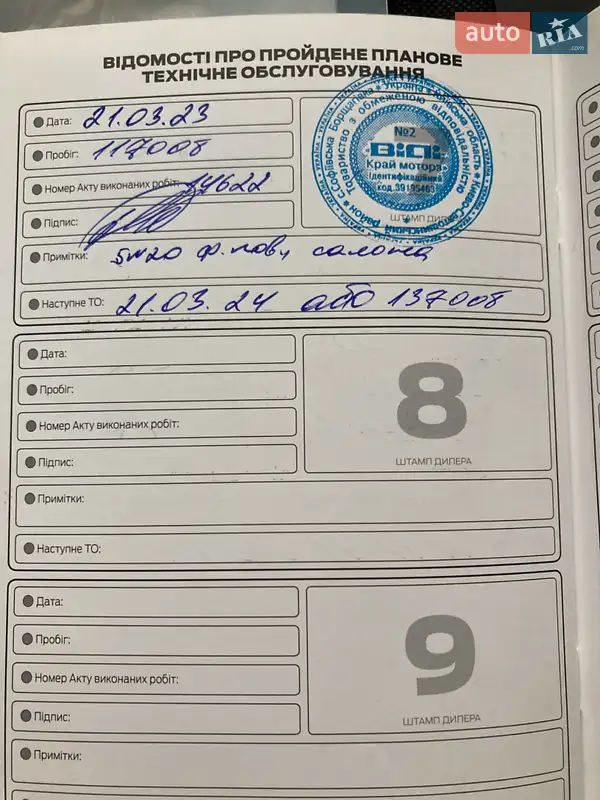 auto RIA .com
ВІДОМОСТІ ПРО ПРОЙДЕНЕ ПЛАНОВЕ
ТЕХНІЧНЕ ОБСЛУГОВУВАННЯ
Дата: 21.03.23
Пробіг: 117008
Номер Акту виконаних робіт: 14622
Підпис:
№2
ВіДі
Край мотора
Ідентифікаційний
код 39195463
Україна * Київська область * Києво-Святошинський район * с.Софіївська Борщагівка *
Товариство з обмеженою відповідальністю
ШТАМП ДИЛЕРА
Примітки: 5W20 ф. пов, салона
Наступне ТО: 21.03.24 або 137008
Дата:
Пробіг:
Номер Акту виконаних робіт:
Підпис:
8
ШТАМП ДИЛЕРА
Примітки:
Наступне ТО:
Дата:
Пробіг:
Номер Акту виконаних робіт:
Підпис:
9
ШТАМП ДИЛЕРА
Примітки: